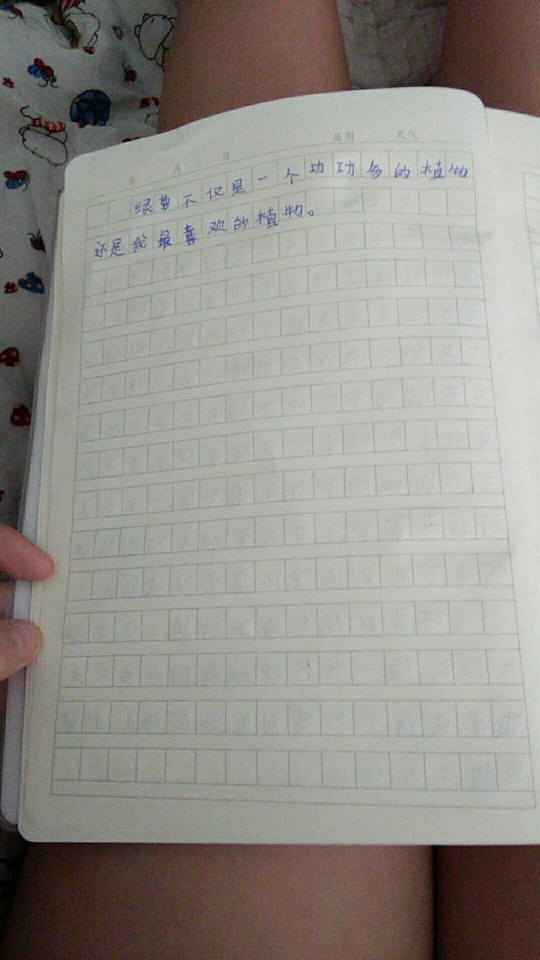 年 月 日 星期 天气
绿萝不仅是一个功功多的植物
还是我最喜欢的植物。